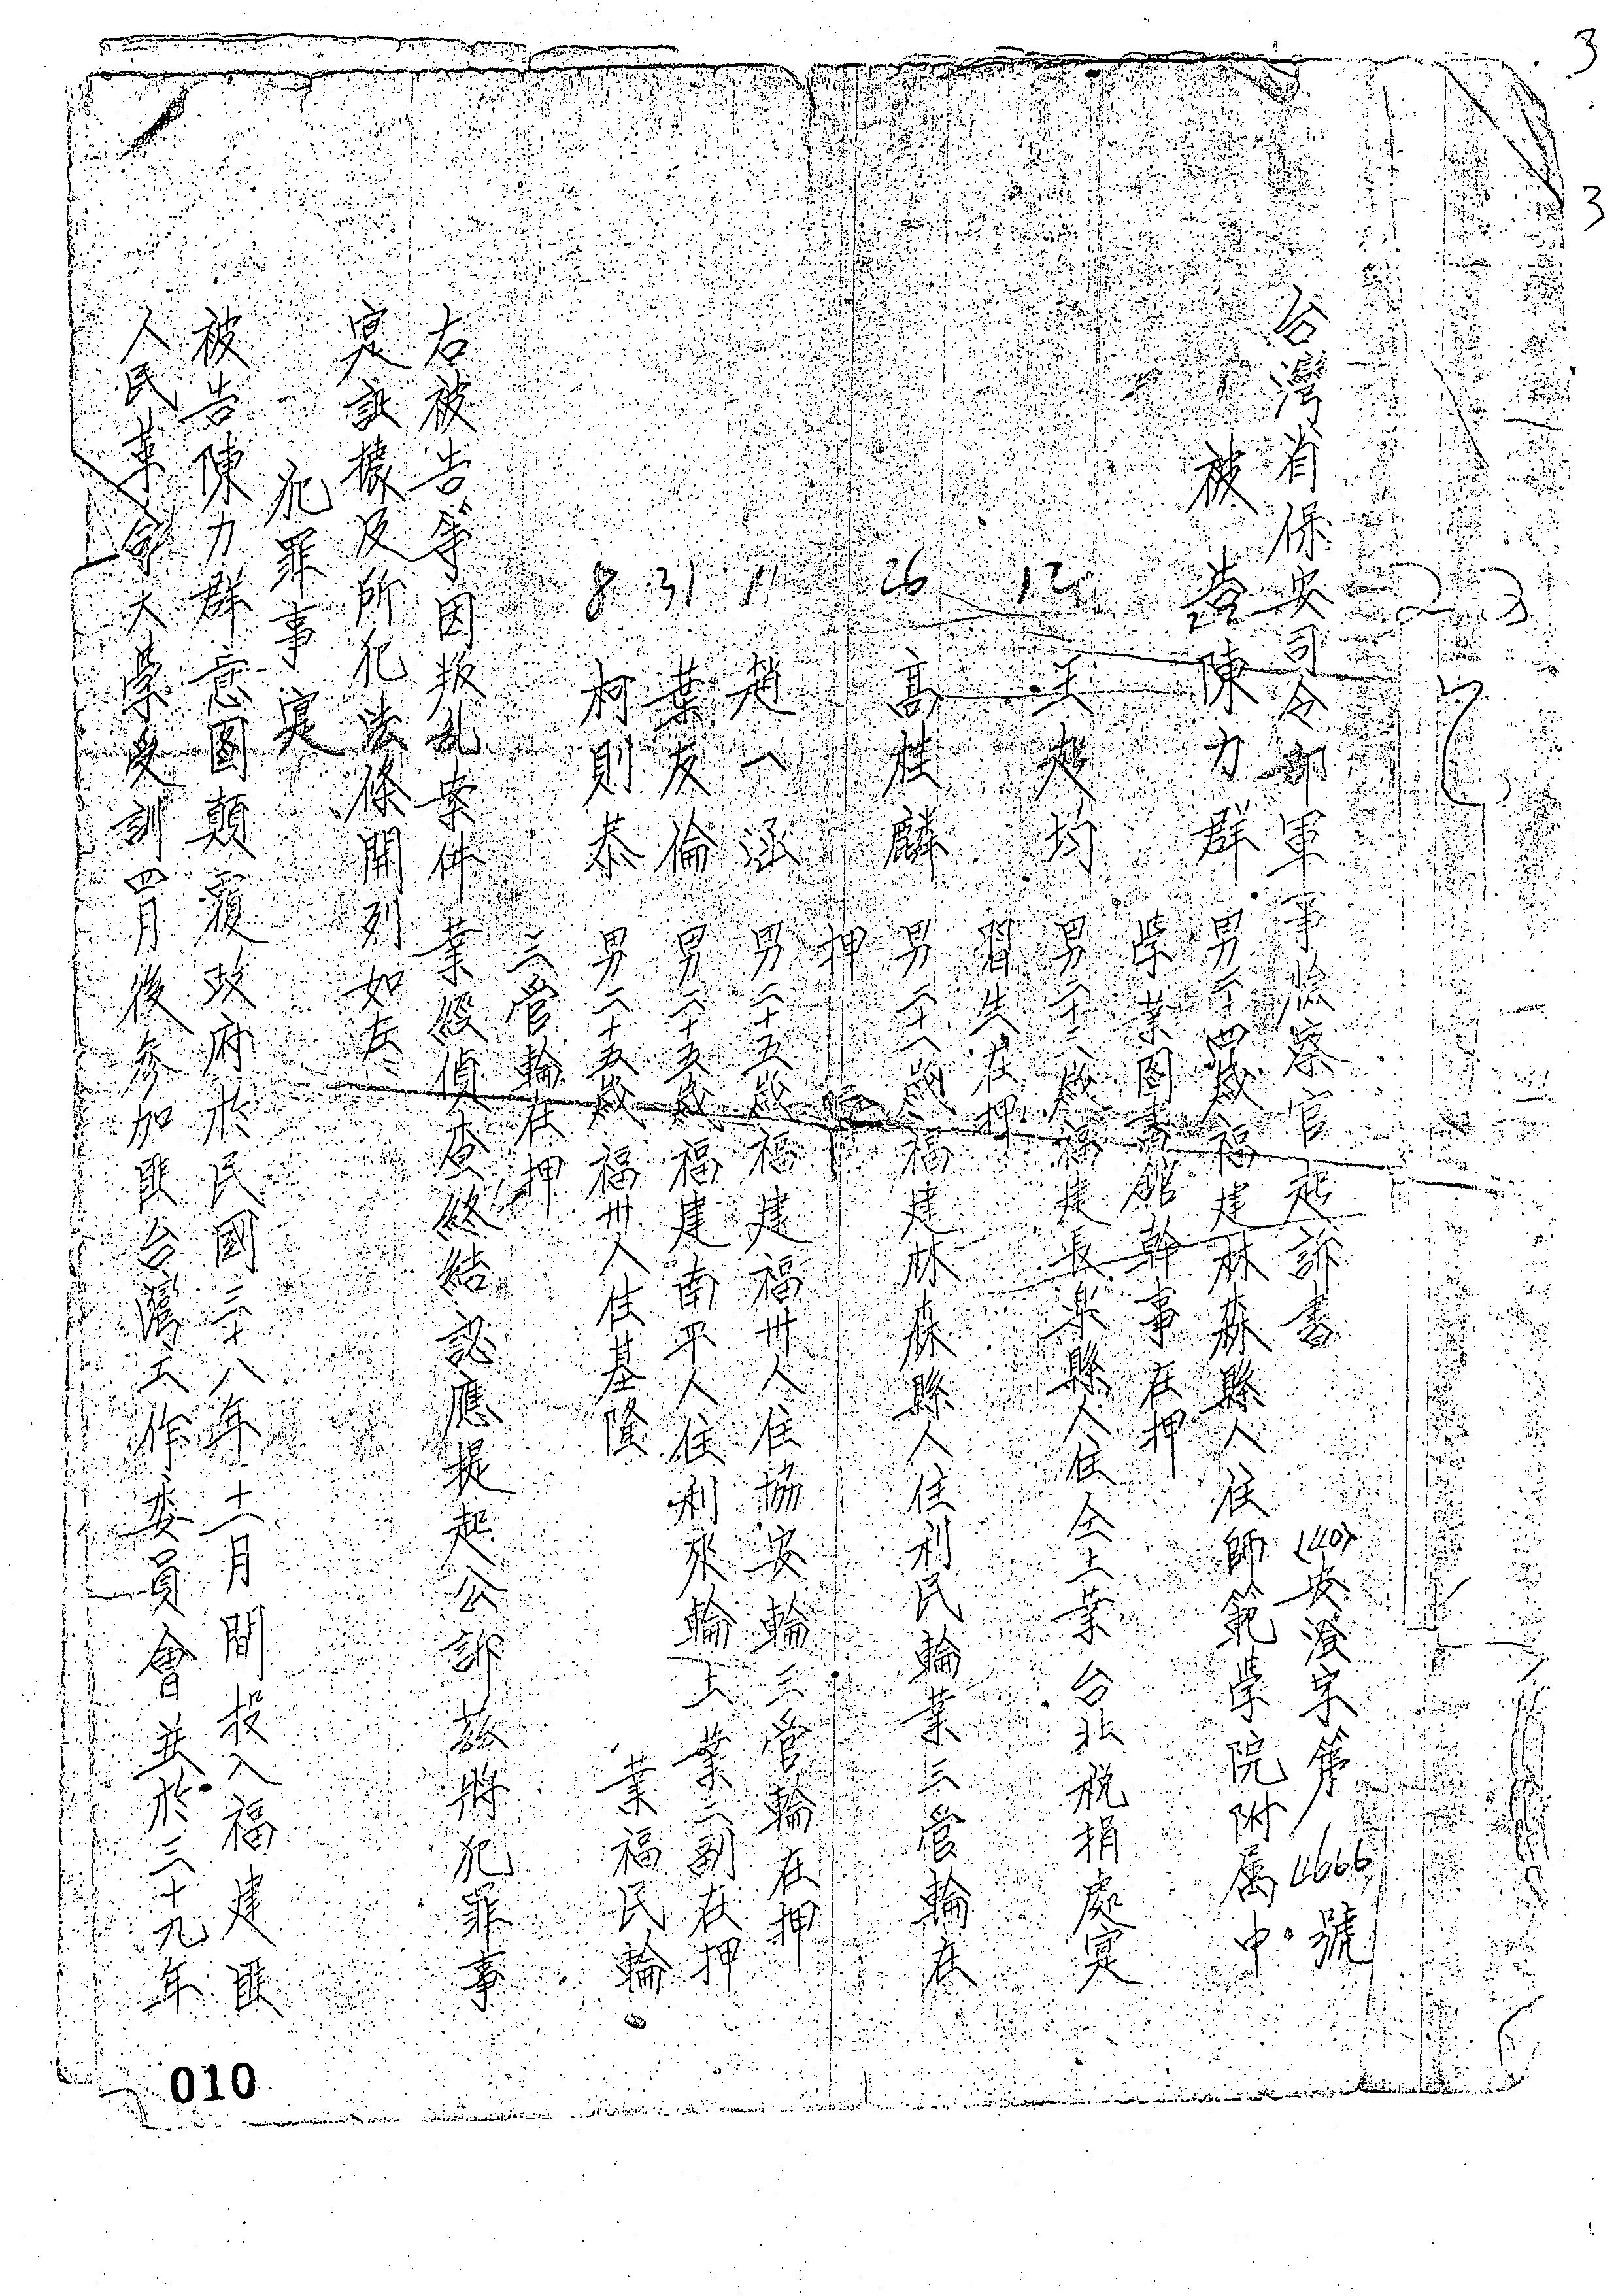 3
3
台灣省保安司令部軍事檢察官起訴書 (40)安澄字第4666號
被告陳力群 男二十四歲福建林森縣人住師範学院附属中
学業圖書館幹事在押
12 王超均 男二十二歲福建長楽縣人住仝上業台北税捐處实
習生在押
26 高桂麟 男二十八歲福建林森縣人住利民輪業三管輪在
押
11 趙一涵 男二十五歲福建福州人住協安輪三管輪在押
31 葉友倫 男二十五歲福建南平人住利來輪上業二副在押
8 柯則恭 男二十五歲福州人住基隆 業福民輪
三管輪在押
右被告等因叛乱案件業經偵查終結認應提起公訴茲將犯罪事
寔証據及所犯法條開列如左
犯罪事寔
被告陳力群意图顛覆政府於民國三十八年十一月間投入福建匪
人民革命大學受訓四月後参加匪台灣工作委員會並於三十九年
010